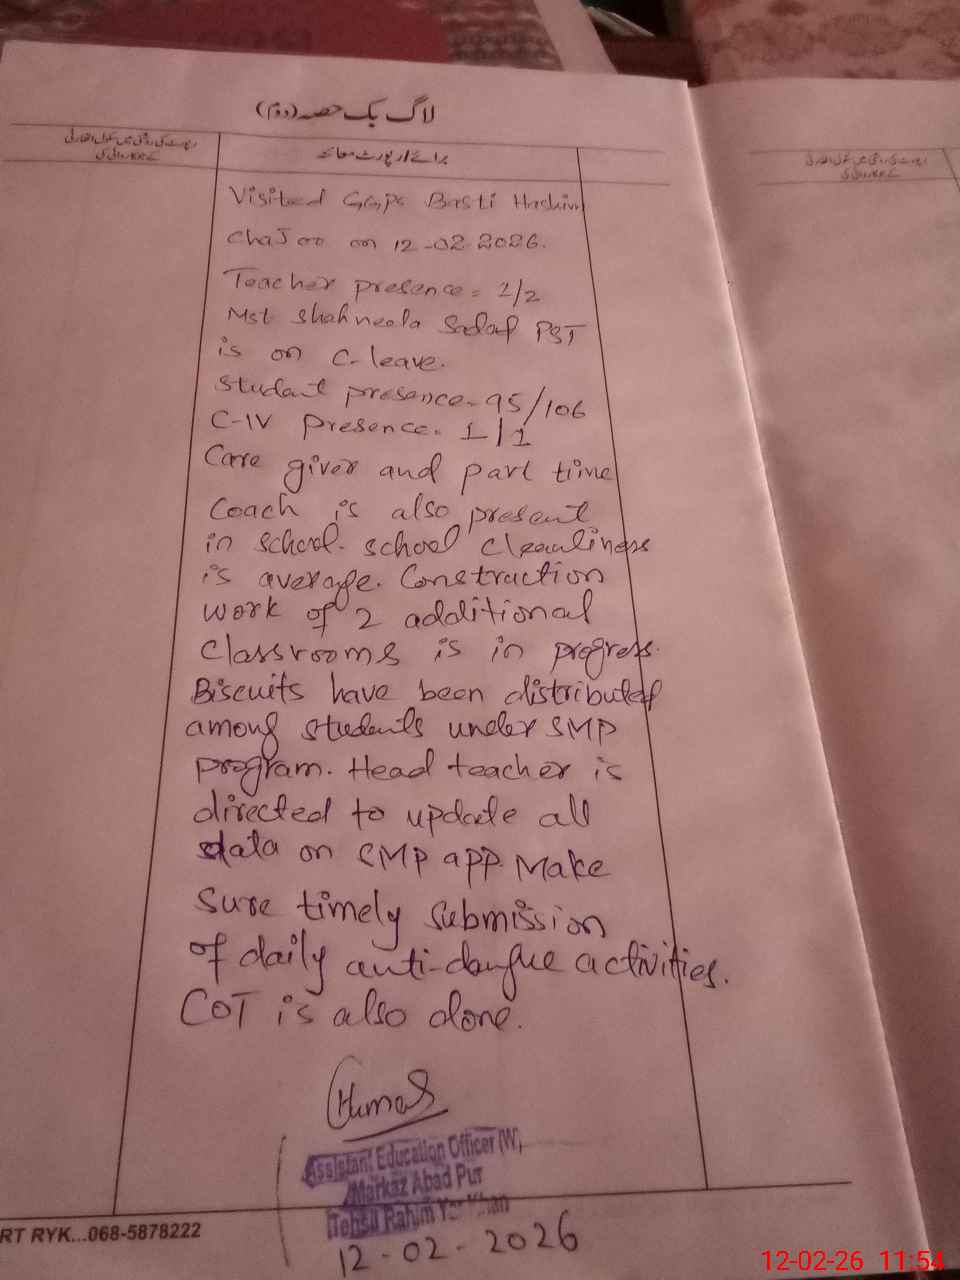 لاگ بک حصہ (دوم)
برائے رپورٹ معائنہ
Visited GGPS Basti Hashim
Chajoo on 12-02-2026.
Teacher presence = 1/2
Mst Shahneela Sadaf PST
is on C-leave.
Student presence = 95/106
C-IV presence = 1/1
Care giver and part time
Coach is also present
in school. school cleanliness
is average. Construction
work of 2 additional
classrooms is in progress.
Biscuits have been distributed
among students under SMP
program. Head teacher is
directed to update all
data on SMP app. Make
Sure timely submission
of daily anti-dengue activities.
COT is also done.
Assistant Education Officer (W)
Markaz Abad Pur
Tehsil Rahim Yar Khan
12-02-2026
RT RYK...068-5878222
12-02-26 11:54